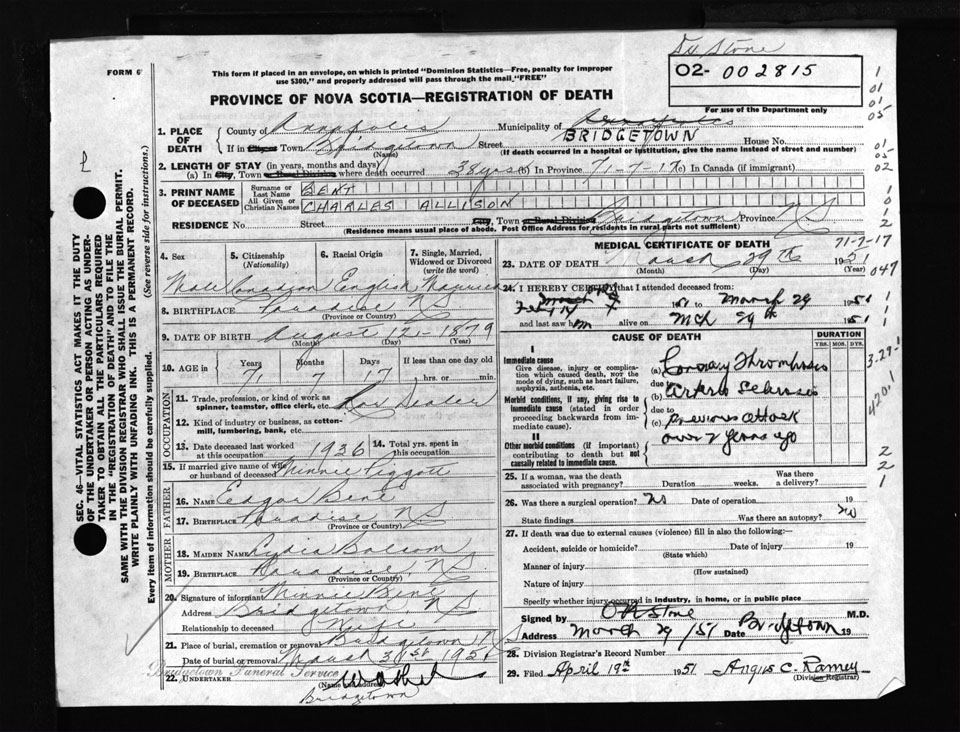 Dr Stone
FORM 6
This form if placed in an envelope, on which is printed "Dominion Statistics—Free, penalty for improper
use $300," and properly addressed will pass through the mail, "FREE"
02- 002815
For use of the Department only
PROVINCE OF NOVA SCOTIA—REGISTRATION OF DEATH
1. PLACE OF DEATH
County of Annapolis Municipality of Annapolis
BRIDGETOWN
If in City, Town Bridgetown Street House No.
(Name) (If death occurred in a hospital or institution, give the name instead of street and number)
2. LENGTH OF STAY (in years, months and days)
(a) In City, Town or Rural Division where death occurred 38 yrs (b) In Province 71-7-17 (c) In Canada (if immigrant)
3. PRINT NAME OF DECEASED
Surname or Last Name BENT
All Given or Christian Names CHARLES ALLISON
RESIDENCE No. Street City, Town or Rural Division Bridgetown Province NS
(Residence means usual place of abode. Post Office Address for residents in rural parts not sufficient)
4. Sex 5. Citizenship (Nationality) 6. Racial Origin 7. Single, Married, Widowed or Divorced (write the word)
Male Canadian English Married
8. BIRTHPLACE Paradise NS
(Province or Country)
9. DATE OF BIRTH August 12 - 1879
(Month) (Day) (Year)
10. AGE IN Years Months Days If less than one day old
71 7 17 hrs. or min.
OCCUPATION
11. Trade, profession, or kind of work as
spinner, teamster, office clerk, etc.
12. Kind of industry or business, as cotton-
mill, lumbering, bank, etc.
13. Date deceased last worked at this occupation 1936 14. Total yrs. spent in this occupation
15. If married give name of wife or husband of deceased Minnie Piggott
FATHER
16. NAME Edgar Bent
17. BIRTHPLACE Paradise NS
(Province or Country)
MOTHER
18. MAIDEN NAME Lydia Balcom
19. BIRTHPLACE Paradise, NS
(Province or Country)
20. Signature of informant Minnie Bent
Address Bridgetown, NS
Relationship to deceased Wife
21. Place of burial, cremation or removal Bridgetown NS
Date of burial or removal March 31st 1951
Bridgetown Funeral Service
22. UNDERTAKER
(Name and address)
Bridgetown
MEDICAL CERTIFICATE OF DEATH
71-7-17
23. DATE OF DEATH March 29th 1951
(Month) (Day) (Year)
24. I HEREBY CERTIFY that I attended deceased from:
1951 to March 29 1951
and last saw him alive on Mch 29th 1951
CAUSE OF DEATH
DURATION
YRS. MOS. DYS.
I
Immediate cause
Give disease, injury or complication which caused death, NOT the mode of dying, such as heart failure, asphyxia, asthenia, etc.
(a) Coronary Thrombosis
due to
Morbid conditions, if any, giving rise to immediate cause (stated in order proceeding backwards from immediate cause).
(b) Arterio Sclerosis
due to
(c) previous attack
over 2 years ago
II
Other morbid conditions (if important) contributing to death but not causally related to immediate cause.
25. If a woman, was the death associated with pregnancy? Duration weeks. Was there a delivery?
26. Was there a surgical operation? No Date of operation 19
State findings Was there an autopsy? No
27. If death was due to external causes (violence) fill in also the following:
Accident, suicide or homicide? Date of injury 19
(State which)
Manner of injury
(How sustained)
Nature of injury
Specify whether injury occurred in industry, in home, or in public place
Signed by O R Stone M.D.
Address March 29/51 Date Bridgetown 19
28. Division Registrar's Record Number
29. Filed April 19th 1951 Angus C. Ramey
(Division Registrar)
SEC. 46—VITAL STATISTICS ACT MAKES IT THE DUTY
OF THE UNDERTAKER OR PERSON ACTING AS UNDER-
TAKER TO OBTAIN ALL THE PARTICULARS REQUIRED
IN THE "REGISTRATION OF DEATH" AND TO FILE THE
SAME WITH THE DIVISION REGISTRAR WHO SHALL ISSUE THE BURIAL PERMIT.
WRITE PLAINLY WITH UNFADING INK. THIS IS A PERMANENT RECORD.
Every item of information should be carefully supplied. (See reverse side for instructions.)
1
01
01
05
01
05
02
1
0
1
2
047
1
1
3-29-1
420.1
2
2
1